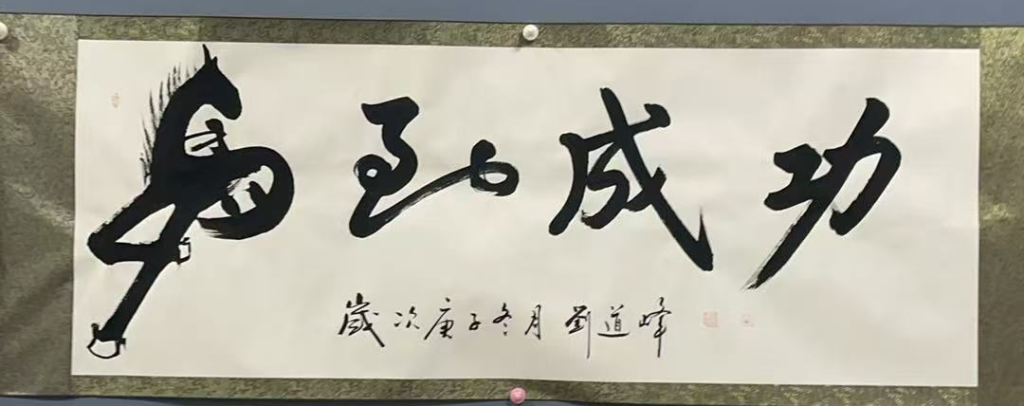 马到成功
歲次庚子冬月 劉道峰